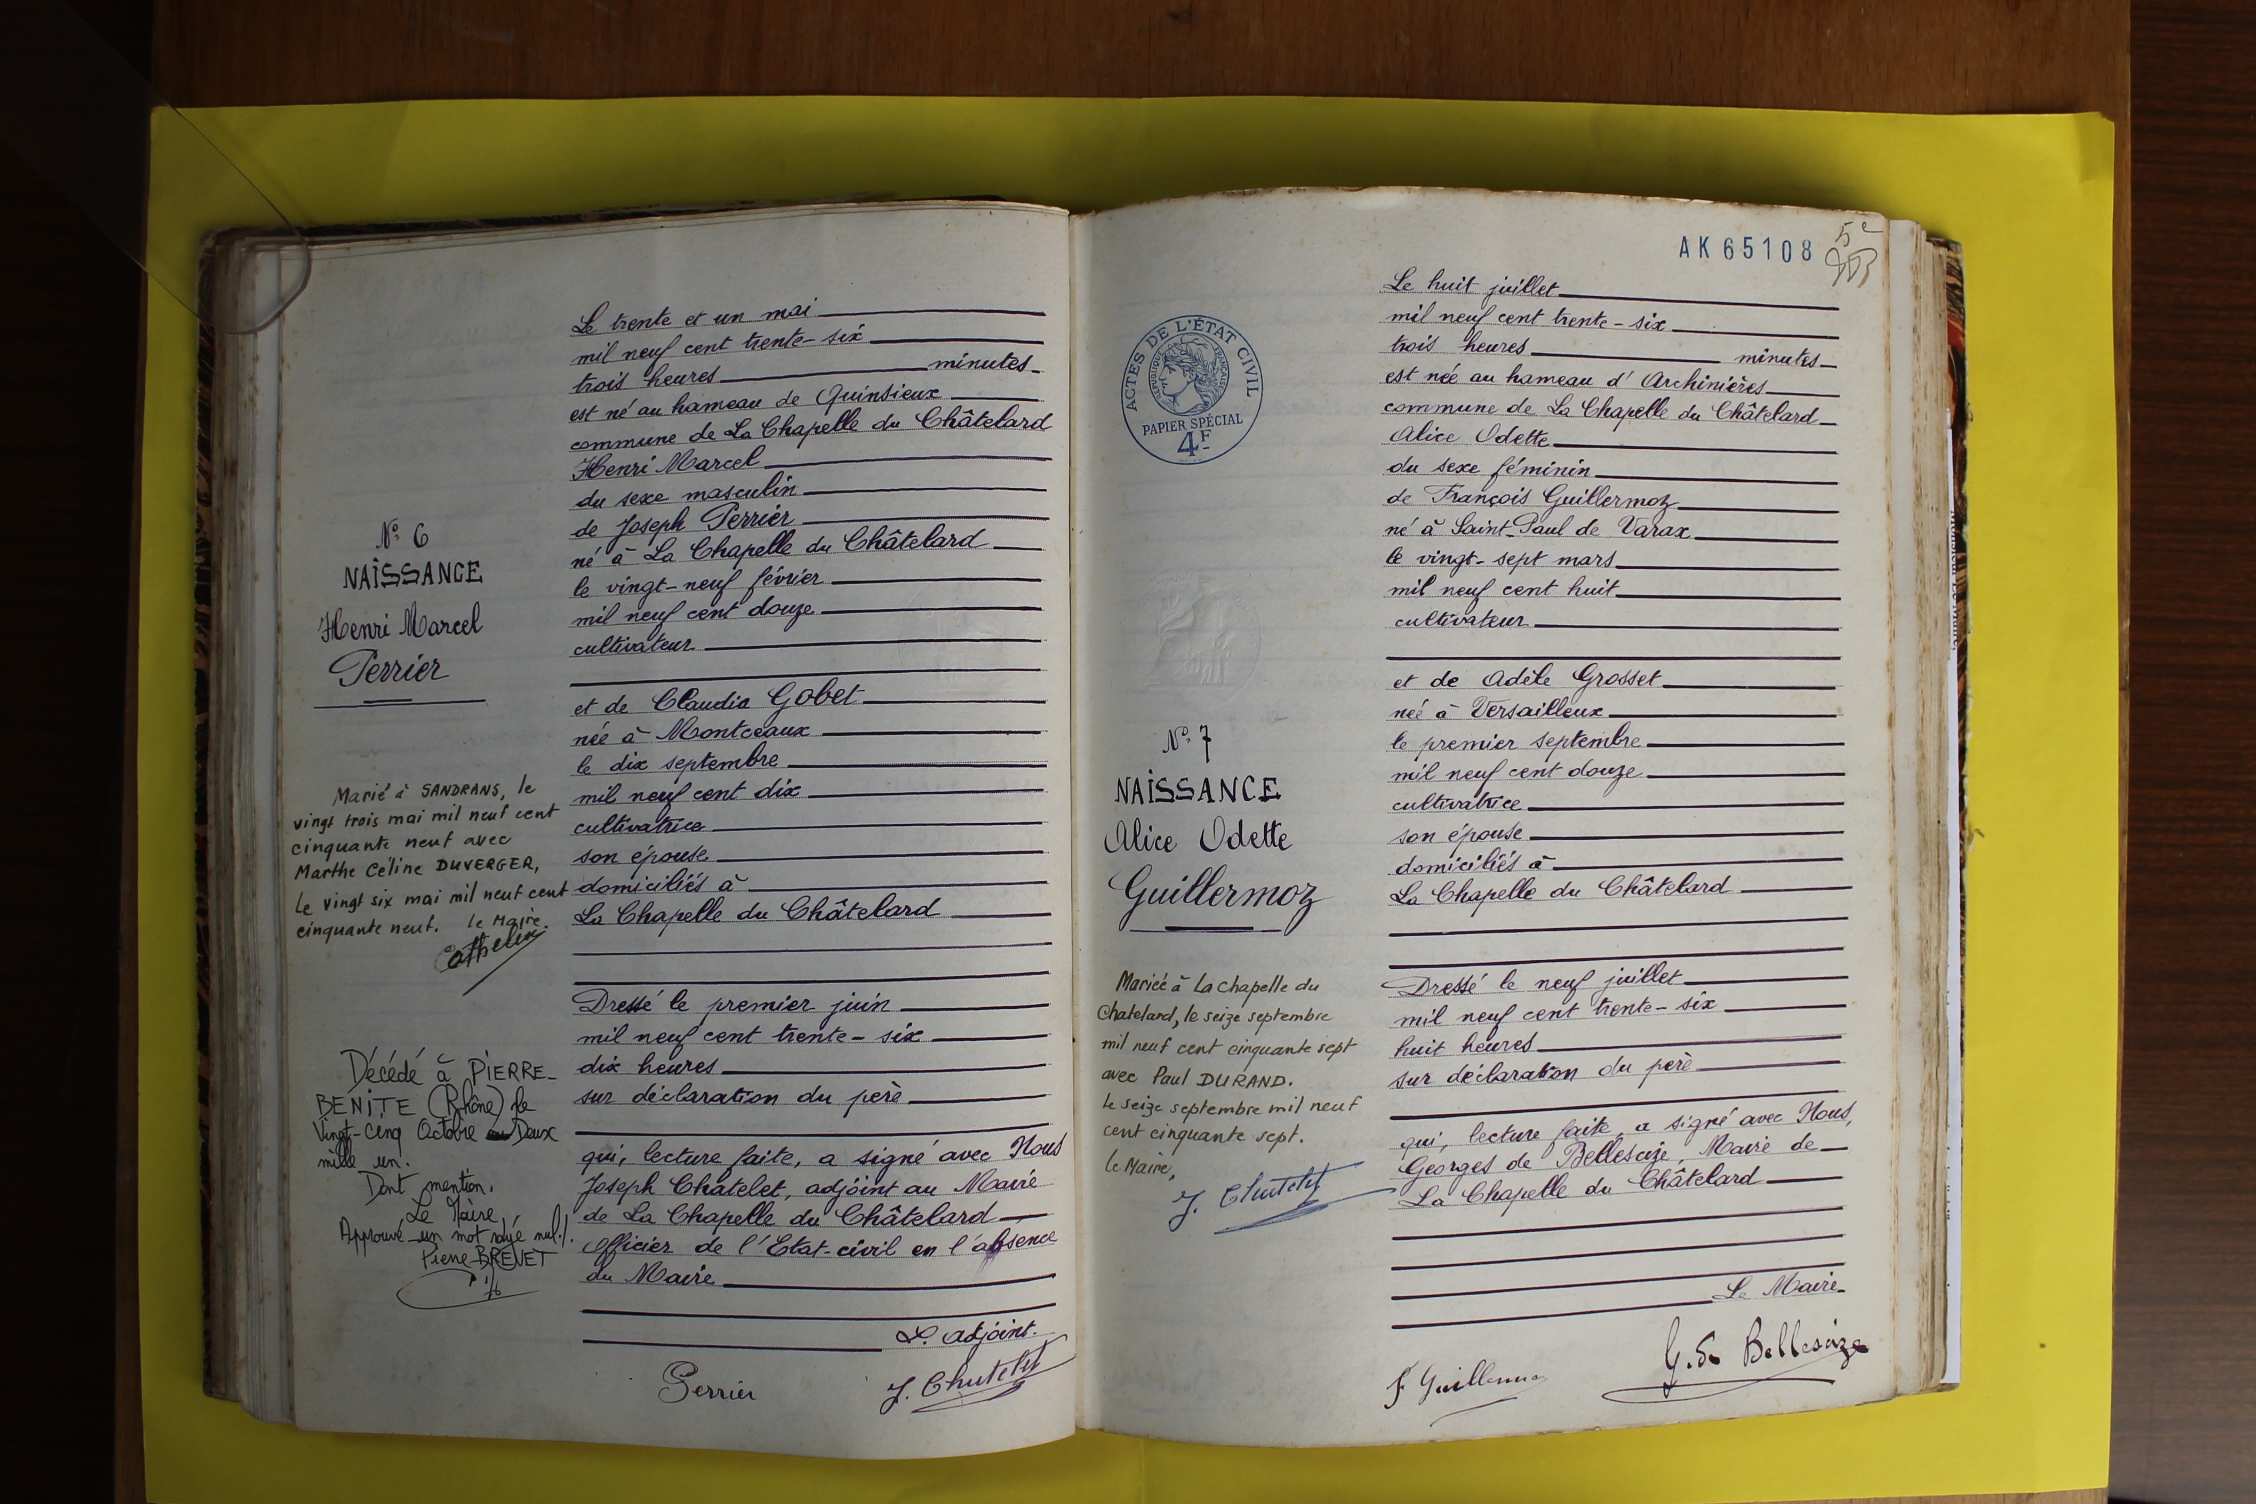 Nº 6
NAISSANCE
Henri Marcel
Perrier
Marié à SANDRANS, le
vingt trois mai mil neuf cent
cinquante neuf avec
Marthe Céline DUVERGER,
Le vingt six mai mil neuf cent
cinquante neuf. le Maire.
Décédé à PIERRE-
BENITE (Rhône) le
Vingt-cinq Octobre Deux
mille un.
Dont mention.
Le Maire
Approuvé un mot rayé nul./.
Pierre BREVET
Le trente et un mai
mil neuf cent trente-six
trois heures minutes
est né au hameau de Quinsieux
commune de La Chapelle du Châtelard
Henri Marcel
du sexe masculin
de Joseph Perrier
né à La Chapelle du Châtelard
le vingt-neuf février
mil neuf cent douze
cultivateur
et de Claudia Gobet
née à Montceaux
le dix septembre
mil neuf cent dix
cultivatrice
son épouse
domiciliés à
La Chapelle du Châtelard
Dressé le premier juin
mil neuf cent trente-six
dix heures
sur déclaration du père
qui, lecture faite, a signé avec Nous
Joseph Chatelet, adjoint au Maire
de La Chapelle du Châtelard
Officier de l'Etat-civil en l'absence
du Maire
L'adjoint.
Perrier
J. Chatelet
AK65108
5e
ACTES DE L'ÉTAT CIVIL
RÉPUBLIQUE FRANÇAISE
PAPIER SPÉCIAL
4F
Nº 7
NAISSANCE
Alice Odette
Guillermoz
Mariée à La Chapelle du
Chatelard, le seize septembre
mil neuf cent cinquante sept
avec Paul DURAND.
Le seize septembre mil neuf
cent cinquante sept.
le Maire,
J. Chatelet
Le huit juillet
mil neuf cent trente-six
trois heures minutes
est née au hameau d'Archinières
commune de La Chapelle du Châtelard
Alice Odette
du sexe féminin
de François Guillermoz
né à Saint-Paul de Varax
le vingt-sept mars
mil neuf cent huit
cultivateur
et de Adèle Grosset
née à Versailleux
le premier septembre
mil neuf cent douze
cultivatrice
son épouse
domiciliés à
La Chapelle du Châtelard
Dressé le neuf juillet
mil neuf cent trente-six
huit heures
sur déclaration du père
qui, lecture faite, a signé avec Nous,
Georges de Bellescize, Maire de
La Chapelle du Châtelard
Le Maire
F Guillermoz
G. de Bellescize